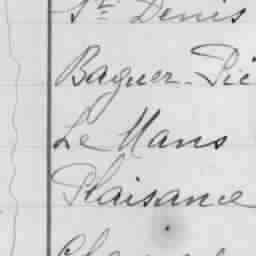 St Denis
Baguer-Pic
Le Mans
Plaisance